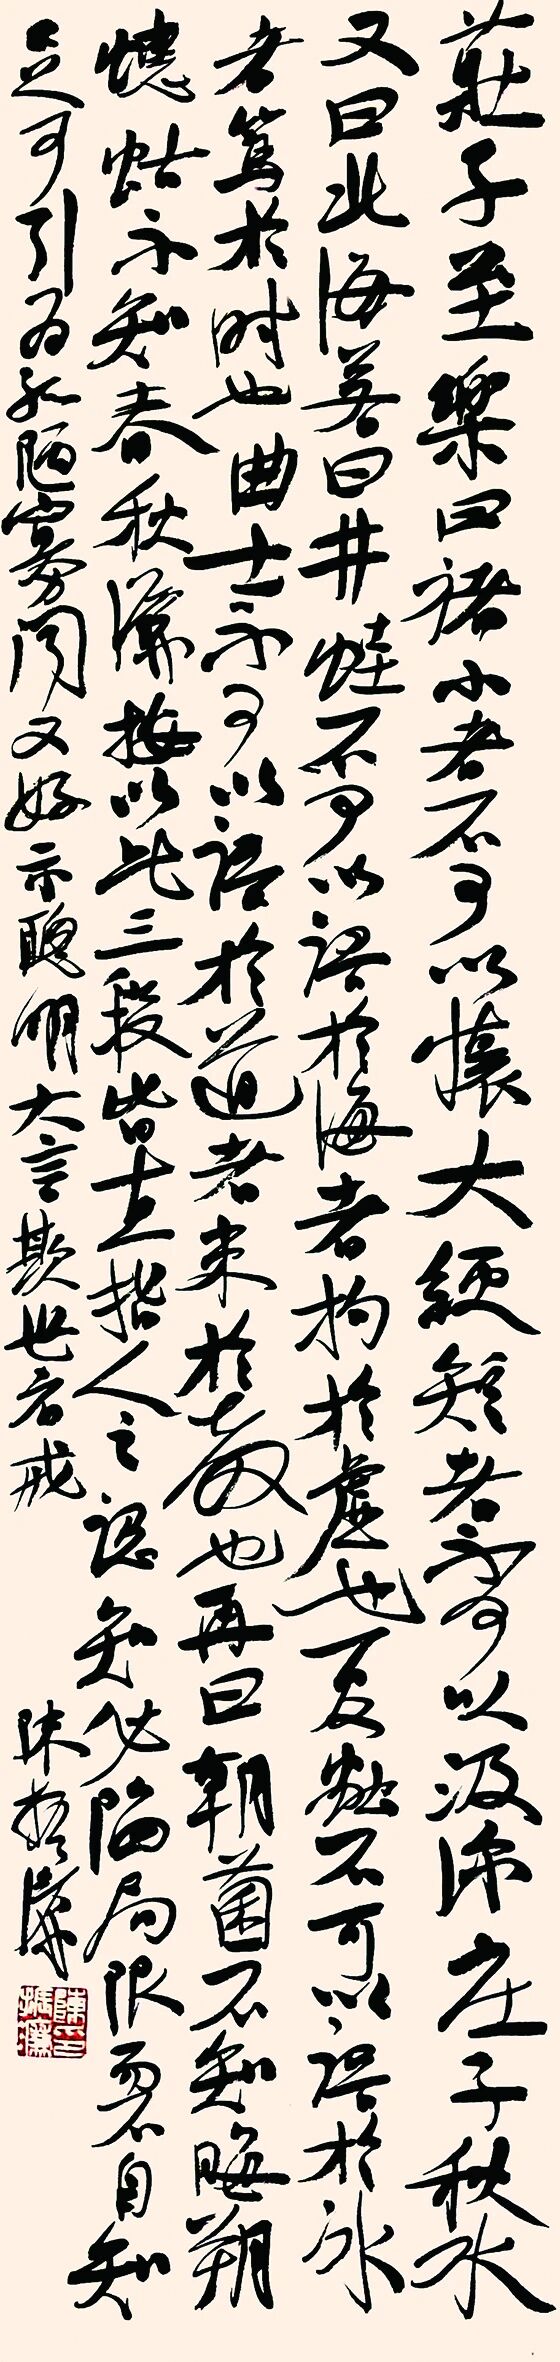 莊子至樂曰褚小者不可以懷大綆短者不可以汲深庄子秋水
又曰北海若曰井蛙不可以語於海者拘於虛也夏蟲不可以語於冰
者篤於时也曲士不可以語於道者束於教也再曰朝菌不知晦朔
蟪蛄不知春秋濂按以此三段皆直指人之認知必陷局限若不自知
足可引為孤陋寡闻又好示聰明大言欺世者戒
陳振濂
陳振濂印